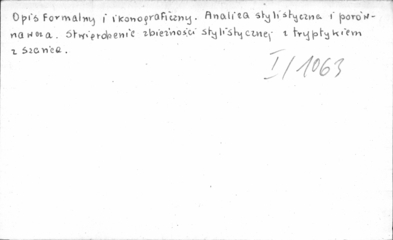 Opis formalny i ikonograficzny. Analiza stylistyczna i porów-
nawcza. Stwierdzenie zbieżności stylistycznej z tryptykiem
z Szańca.
I/1063